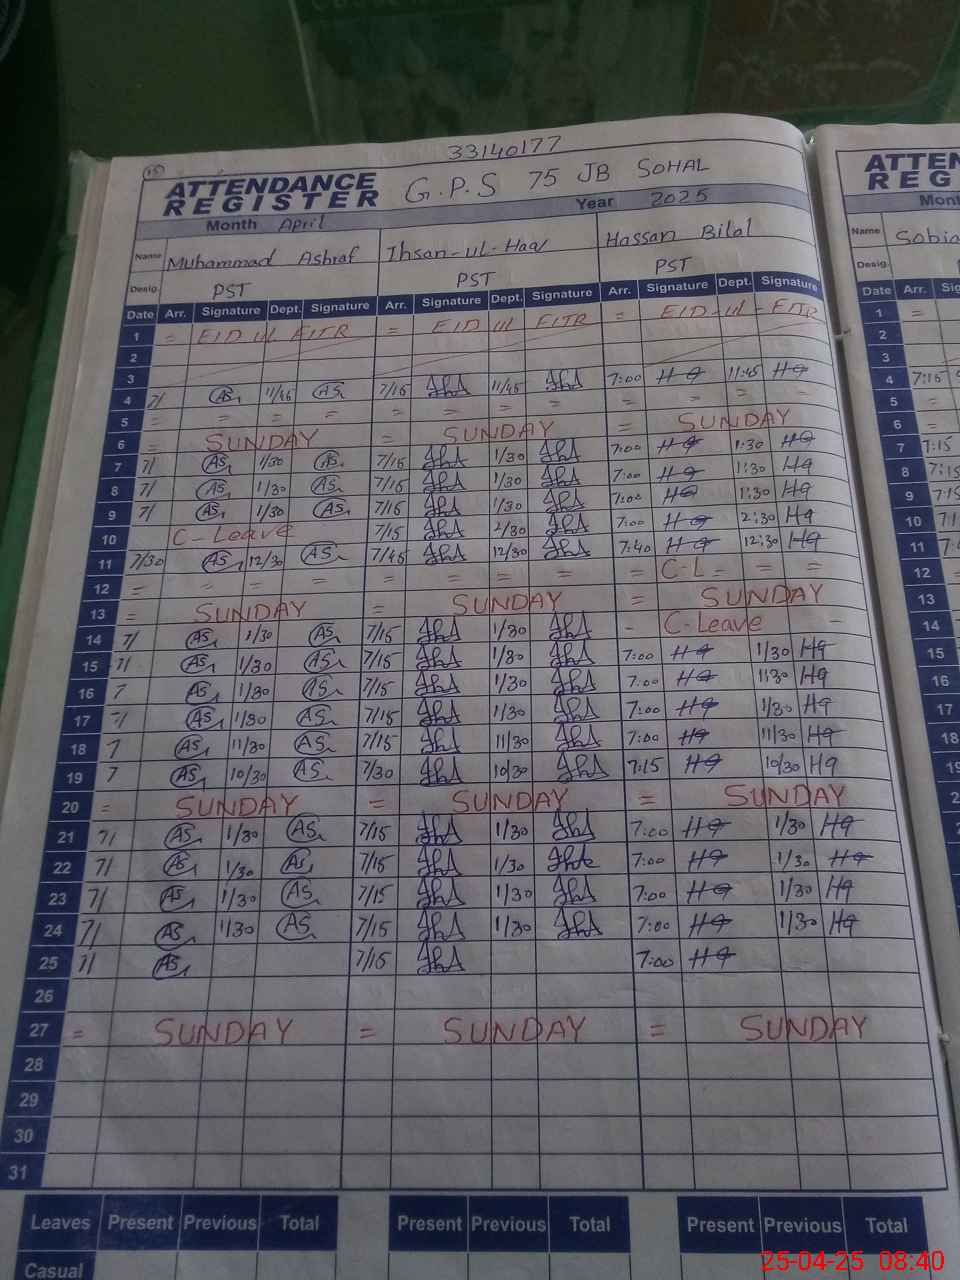 33140177
15
ATTENDANCE REGISTER G.P.S 75 JB SOHAL
Month April Year 2025
Name Muhammad Ashraf Ihsan-ul-Haq Hassan Bilal
Desig. PST PST PST
Date Arr. Signature Dept. Signature Arr. Signature Dept. Signature Arr. Signature Dept. Signature
1 = EID ul FITR = EID ul FITR = EID-ul-FITR
2
3
4 7/ AS 11/45 AS 7/15 11/45 7:00 HQ 11:45 HQ
5 = = = = = = = = = = = -
6 = SUNDAY = SUNDAY = SUNDAY
7 7/ AS 1/30 AS 7/15 1/30 7:00 HQ 1:30 HQ
8 7/ AS 1/30 AS 7/15 1/30 7:00 HQ 1:30 HQ
9 7/ AS 1/30 AS 7/15 1/30 7:00 HQ 1:30 HQ
10 C-Leave 7/15 2/30 7:00 HQ 2:30 HQ
11 7/30 AS 12/30 AS 7/45 12/30 7:40 HQ 12:30 HQ
12 = = = = = = = = = C-L = = =
13 = SUNDAY = SUNDAY = SUNDAY
14 7/ AS 1/30 AS 7/15 1/30 - C-Leave -
15 7/ AS 1/30 AS 7/15 1/30 7:00 HQ 1/30 HQ
16 7 AS 1/30 AS 7/15 1/30 7:00 HQ 1:30 HQ
17 7/ AS 1/30 AS 7/15 1/30 7:00 HQ 1/30 HQ
18 7 AS 11/30 AS 7/15 11/30 7:00 HQ 11/30 HQ
19 7 AS 10/30 AS 7/30 10/30 7:15 HQ 10/30 HQ
20 = SUNDAY = SUNDAY = SUNDAY
21 7/ AS 1/30 AS 7/15 1/30 7:00 HQ 1/30 HQ
22 7/ AS 1/30 AS 7/15 1/30 7:00 HQ 1/30 HQ
23 7/ AS 1/30 AS 7/15 1/30 7:00 HQ 1/30 HQ
24 7/ AS 1/30 AS 7/15 1/30 7:00 HQ 1/30 HQ
25 7/ AS 7/15 7:00 HQ
26
27 = SUNDAY = SUNDAY = SUNDAY
28
29
30
31
Leaves Present Previous Total Present Previous Total Present Previous Total
Casual
Name Sobia
Desig.
Date Arr.
1 =
2
3
4 7:15
5 =
6 =
7 7:15
8 7:15
9
10
11
12 =
13
14
15
16
17
18
25-04-25 08:40